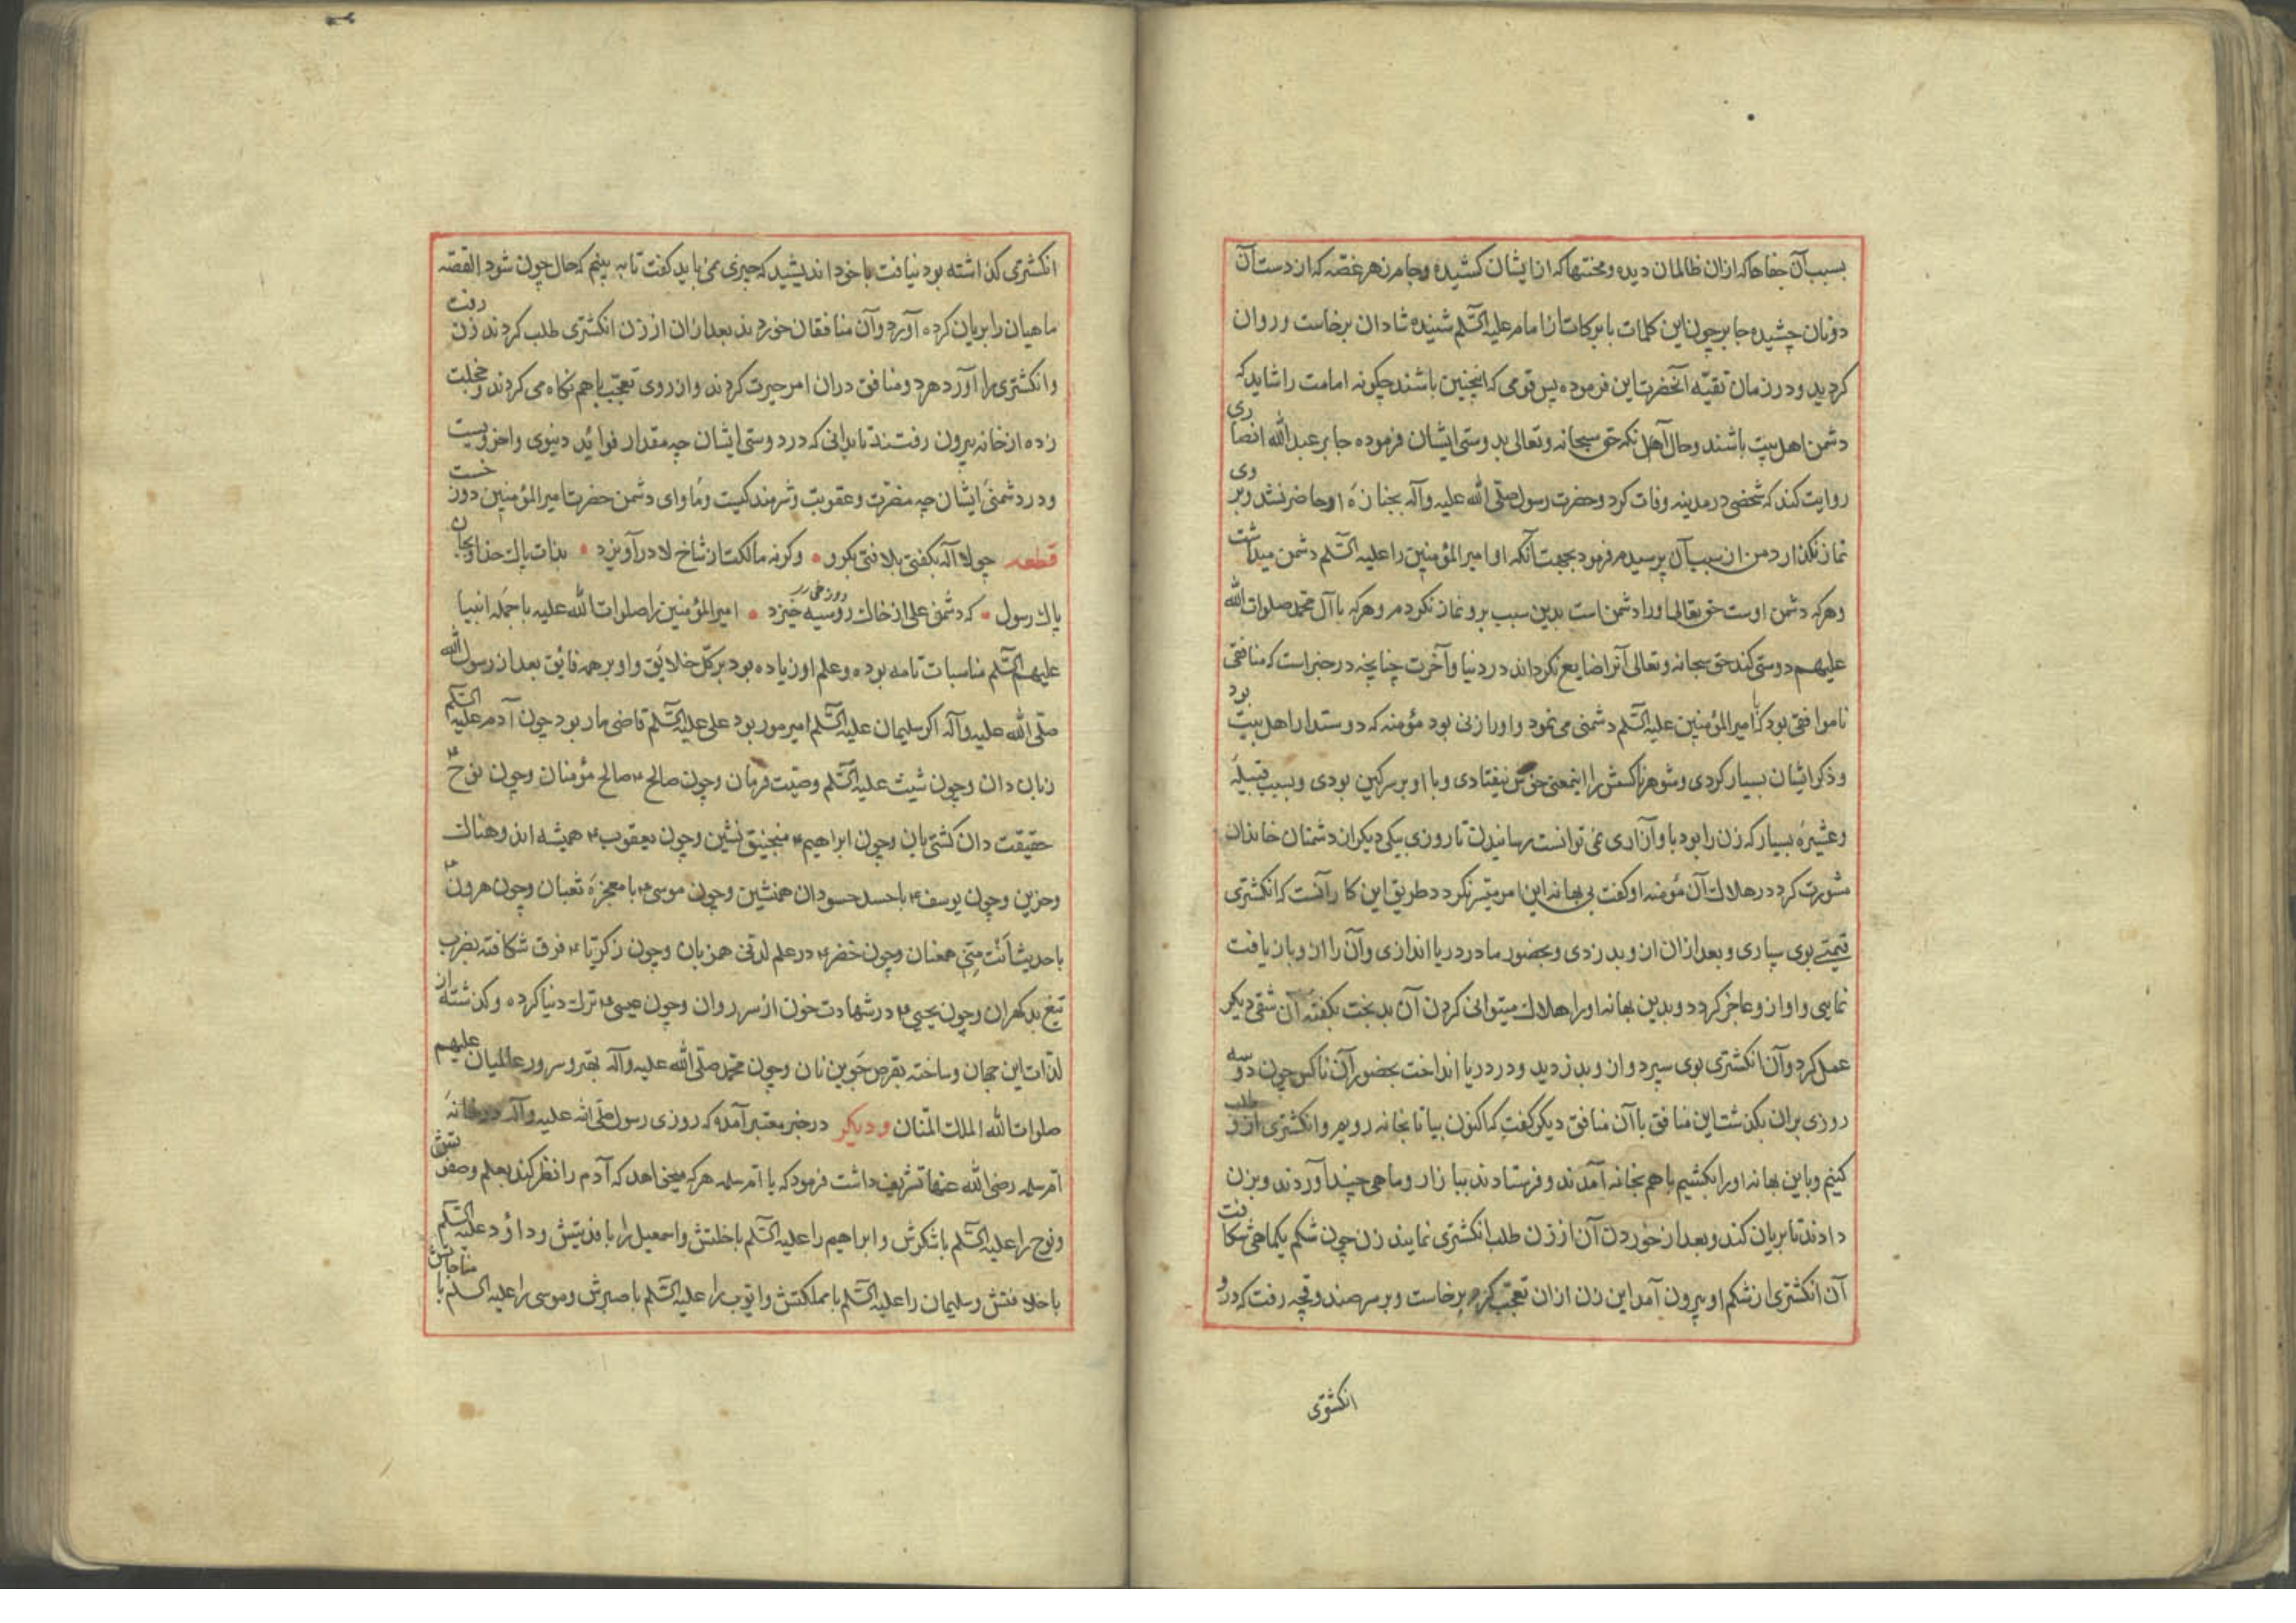 بسبب آن جفاها که ازان ظالمان دیده و محنتها که از ایشان کشیده و جام زهر غصّه که از دست آن
دونان چشیده جابر چون این کلمات با برکات از امام علیه السّلم شنیده شادان برخاست و روان
کردید و در زمان تقیّه آنحضرت این فرموده پس قومی که اینچنین باشند چکونه امامت را شاید که
دشمن اهل بیت باشند و حال آنکه حق سبحانه و تعالی بدوستی ایشان فرموده جابر عبد الله انصاری
روایت کند که شخصی در مدینه وفات کرد و حضرت رسول صلّی الله علیه وآله بجنازهٔ او حاضر نشد و بروی
نماز نکذارد من از سبب آن پرسیدم فرمود بجهت آنکه او امیر المؤمنین را علیه السّلم دشمن میداشت
و هرکه دشمن اوست حق تعالی او را دشمن است بدین سبب برو نماز نکردم و هرکه با آل محمد صلوات الله
علیهم دوستی کند حق سبحانه و تعالی آنرا ضایع نکرداند در دنیا و آخرت چنانچه در خبر است که منافقی
ناموافق بود که با امیر المؤمنین علیه السّلم دشمنی می نمود و او را زنی بود مؤمنه که دوستدار اهل بیت بود
و ذکر ایشان بسیار کردی و شوهر ناکسش را اینمعنی خوش نیفتادی و با او بر سر کین بودی و بسبب قبیلهٔ
و عشیرهٔ بسیار که زن را بود باو آزاری نمی توانست رسانیدن تا روزی بیکی دیکر از دشمنان خاندان
مشورت کرد در هلاک آن مؤمنه او کفت بی بهانه این امر میسّر نکردد طریق این کار آنست که انکشتری
قیمتی بوی سپاری و بعد ازان از و بدزدی و بحضور ما در دریا اندازی و آن را از و باز یافت
نمایی و او از و عاجز کردد و بدین بهانه او را هلاک میتوانی کردن آن بدبخت بکفتهٔ آن شقی دیکر
عمل کرد و آن انکشتری بوی سپرد و از و بدزدید و در دریا انداخت بحضور آن ناکس چون دو سه
روزی بران بکذشت این منافق با آن منافق دیکر کفت که اکنون بیا تا بخانه رویم و انکشتری از و طلب
کنیم و باین بهانه او را بکشیم باهم بخانه آمدند و فرستادند ببازار و ماهی چند آوردند و بزن
دادند تا بریان کند و بعد از خوردن آن از زن طلب انکشتری نمایند زن چون شکم یکماهی شکافت
آن انکشتری از شکم او بیرون آمد این زن ازان تعجّب کرد و برخاست و بر سر صندوقچه رفت که در و
انکشتری
انکشتری کذاشته بود نیافت با خود اندیشید که چیزی نمی باید کفت تا به بینم که حال چون شود القصّه
ماهیان را بریان کرده آورد و آن منافقان خوردند بعد ازان از زن انکشتری طلب کردند زن رفت
و انکشتری را آورد هر دو منافق دران امر حیرت کردند و از روی تعجّب باهم نکاه می کردند و خجلت
زده از خانه بیرون رفتند تا بدانی که در دوستی ایشان چه مقدار فوائد دینوی و اخرویست
و در دشمنیٔ ایشان چه مضرّت و عقوبت و شرمندکیست و ماوای دشمن حضرت امیر المؤمنین دوزخست
قطعه چو لا اله بکفتی بلا فتی بکرو وکرنه مالکت از شاخ لا در آویزد بذات پاک خدا و بجان
پاک رسول که دشمن علی از خاک روسیه خیزد امیر المؤمنین را صلوات الله علیه با جمله انبیا
علیهم السّلم مناسبات تامه بوده و علم او زیاده بود بر کلّ خلایق و او بر همه فائق بعد از رسول الله
صلّی الله علیه وآله اکر سلیمان علیه السّلم امیر مور بود علی علیه السّلم قاضی مار بود چون آدم علیه السّلم
زبان دان و چون شیث علیه السّلم وصیّت فرمان و چون صالح ۴ صالح مؤمنان و چون نوح ۴
حقیقت دان کشتی بان و چون ابراهیم ۴ منجنیق نشین و چون یعقوب ۴ همیشه اندوهناک
و حزین و چون یوسف ۴ با حسد حسودان همنشین و چون موسی ۴ با معجزهٔ ثعبان و چون هرون ۴
با حدیث اَنْتَ مِنّی همعنان و چون خضر ۴ در علم لدنّی همزبان و چون زکریّا ۴ فرق شکافته بضرب
تیغ بدکهران و چون یحیی ۴ در شهادت خون از سر روان و چون عیسی ۴ ترک دنیا کرده و کذشته از
لذّات این جهان و ساخته بقرص جوین نان و چون محمّد صلّی الله علیه وآله بهتر و سرور عالمیان علیهم
صلوات الله الملک المنّان و دیکر در خبر معتبر آمده که روزی رسول صلّی الله علیه وآله در خانهٔ
امّ سلمه رضی الله عنها تشریف داشت فرمود که یا امّ سلمه هرکه میخواهد که آدم را نظر کند بعلم و صفوتش
و نوح را علیه السّلم با شکرش و ابراهیم را علیه السّلم با خلتش و اسمعیل را با فدیتش و داؤد علیه السّلم
با خلافتش و سلیمان را علیه السّلم با مملکتش و ایّوب را علیه السّلم با صبرش و موسی را علیه السلم با مناجاتش